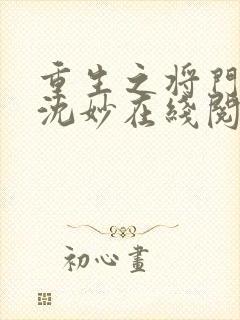 重生之将門
沈妙在綫閱
初心畫